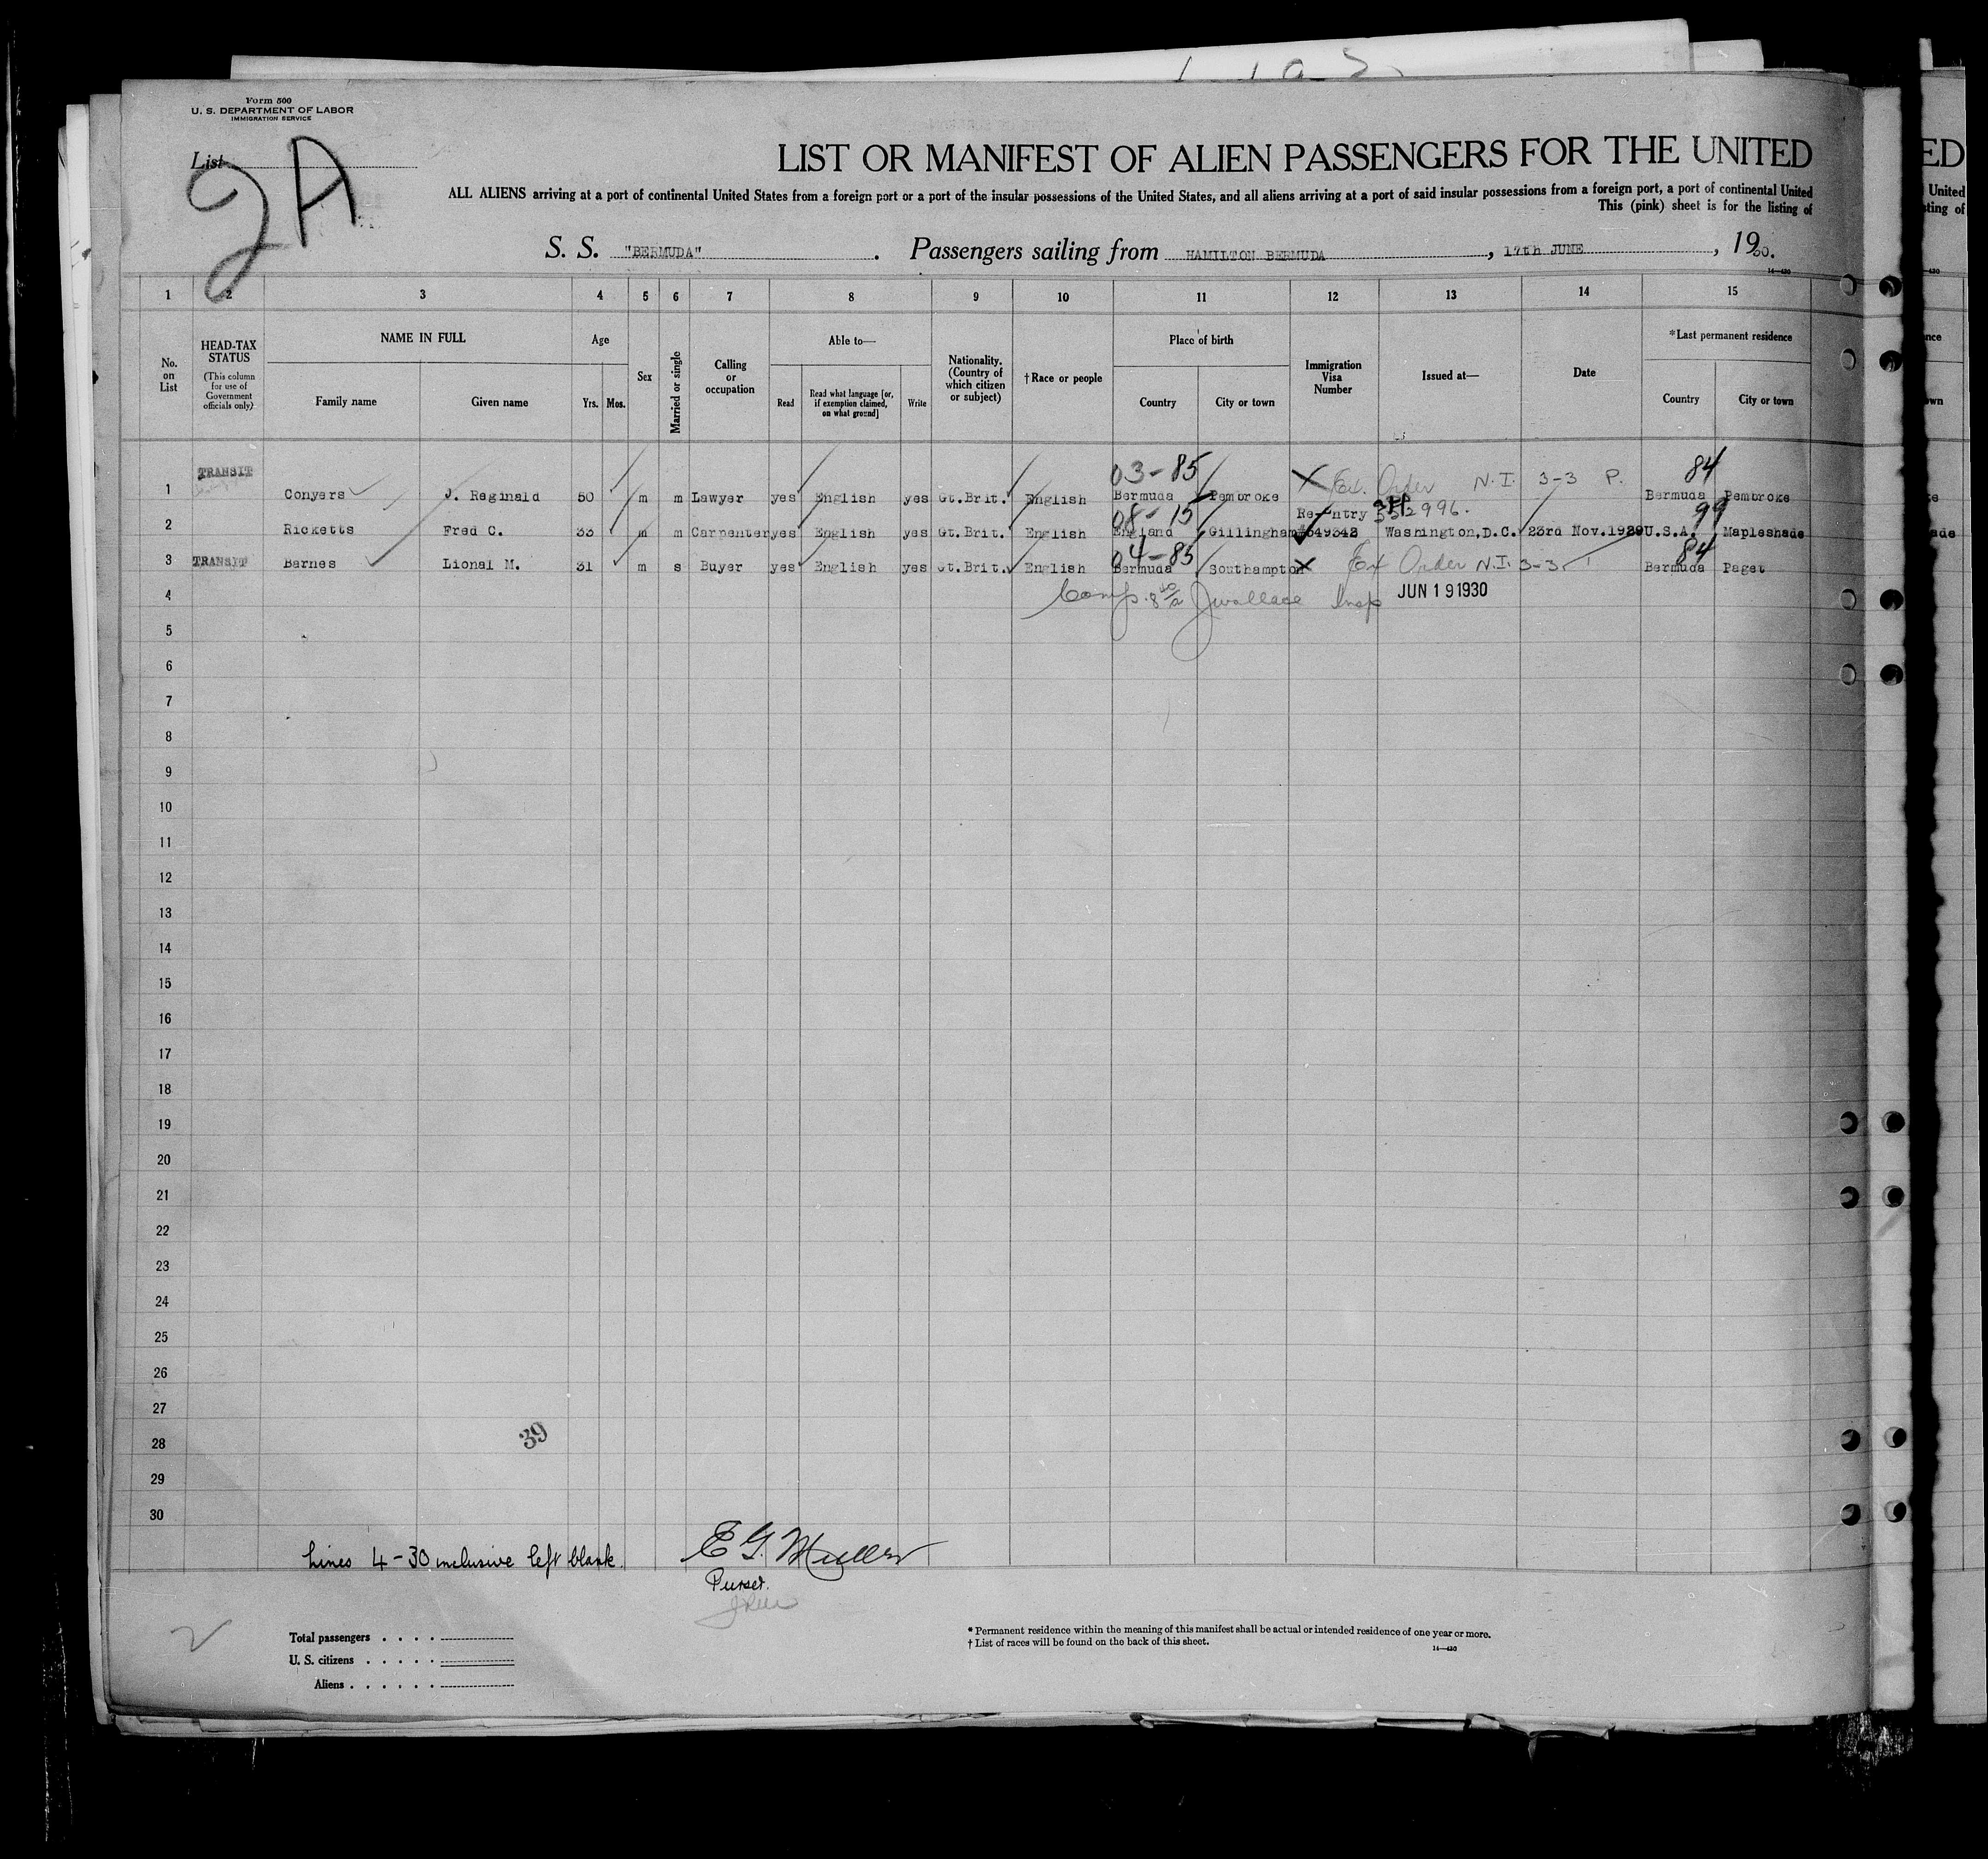 Form 500
U. S. DEPARTMENT OF LABOR
IMMIGRATION SERVICE
List
2A
LIST OR MANIFEST OF ALIEN PASSENGERS FOR THE UNITED
ALL ALIENS arriving at a port of continental United States from a foreign port or a port of the insular possessions of the United States, and all aliens arriving at a port of said insular possessions from a foreign port, a port of continental United
This (pink) sheet is for the listing of
S. S. "BERMUDA". Passengers sailing from HAMILTON BERMUDA, 17th JUNE, 1930.
14—430
1 2 3 4 5 6 7 8 9 10 11 12 13 14 15
No. on List
HEAD-TAX STATUS
(This column for use of Government officials only)
NAME IN FULL
Family name Given name
Age
Yrs. Mos.
Sex
Married or single
Calling or occupation
Able to—
Read
Read what language [or, if exemption claimed, on what ground]
Write
Nationality. (Country of which citizen or subject)
†Race or people
Place of birth
Country City or town
Immigration Visa Number
Issued at—
Date
*Last permanent residence
Country City or town
03-85 84
1 TRANSIT Conyers J. Reginald 50 m m Lawyer yes English yes Gt.Brit. English Bermuda Pembroke Ex. Order N.I. 3-3 P. Bermuda Pembroke
08-15 Re-entry 99
2 Ricketts Fred C. 33 m m Carpenter yes English yes Gt.Brit. English England Gillingham Washington,D.C. 23rd Nov.1929 U.S.A. Mapleshade
04-85 84
3 TRANSIT Barnes Lional M. 31 m s Buyer yes English yes Gt.Brit. English Bermuda Southampton Ex Order N.I. 3-3 Bermuda Paget
4 JWallace Insp JUN 19 1930
5
6
7
8
9
10
11
12
13
14
15
16
17
18
19
20
21
22
23
24
25
26
27
28
29
30
39
Lines 4-30 inclusive left blank.
E G. Muller
Purser.
Total passengers
U. S. citizens
Aliens
* Permanent residence within the meaning of this manifest shall be actual or intended residence of one year or more.
† List of races will be found on the back of this sheet.
14—430